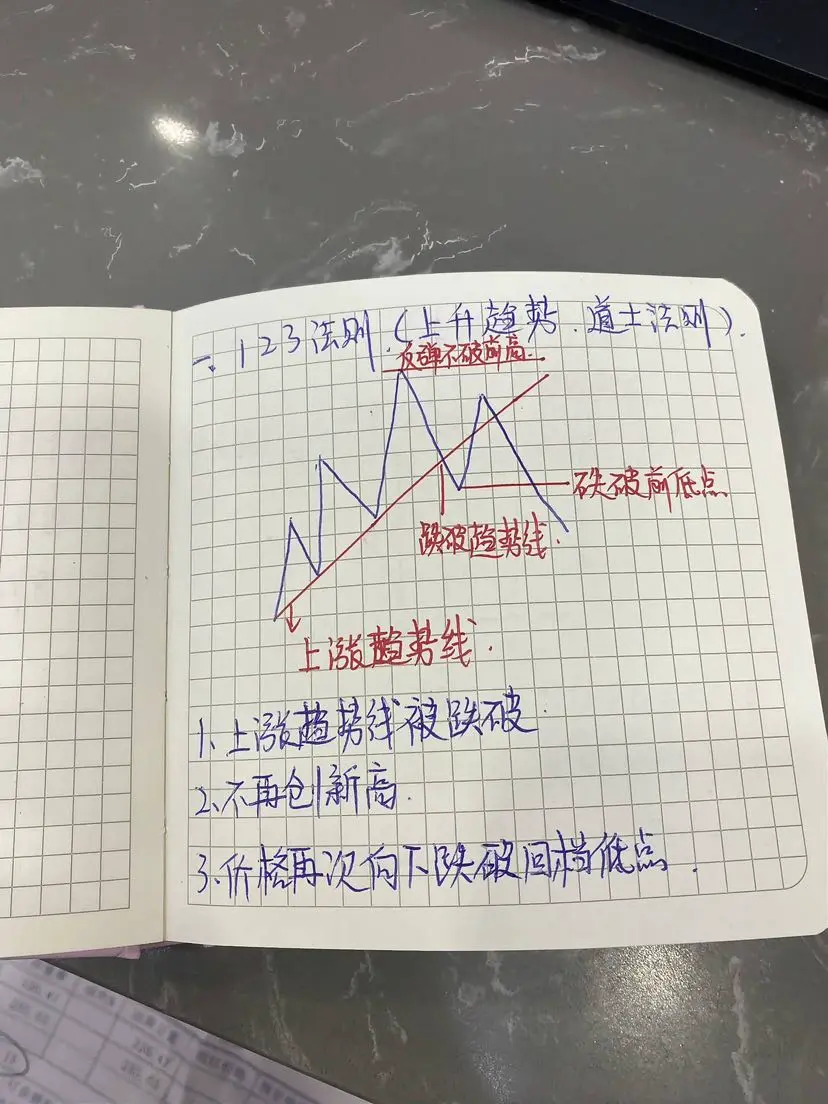 一、123法则.(上升趋势.道士法则).
反弹不破前高.
跌破前低点
跌破趋势线.
上涨趋势线.
1、上涨趋势线被跌破.
2、不再创新高.
3、价格再次向下跌破回档低点.